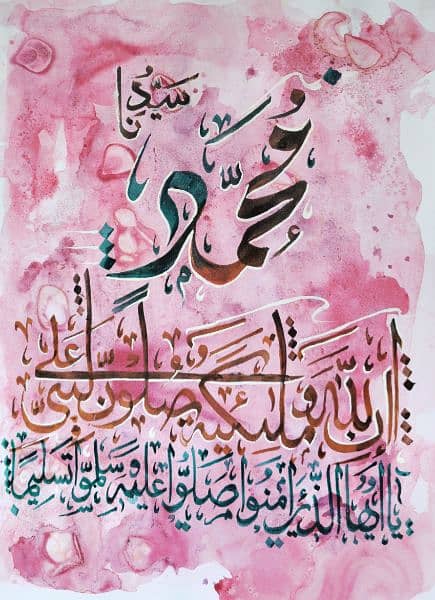 سَيِّدُنَا
مُحَمَّدٌ
إِنَّ اللّٰهَ وَمَلٰئِكَتَهُ يُصَلُّونَ عَلَى النَّبِيِّ
يَا أَيُّهَا الَّذِينَ آمَنُوا صَلُّوا عَلَيْهِ وَسَلِّمُوا تَسْلِيمًا